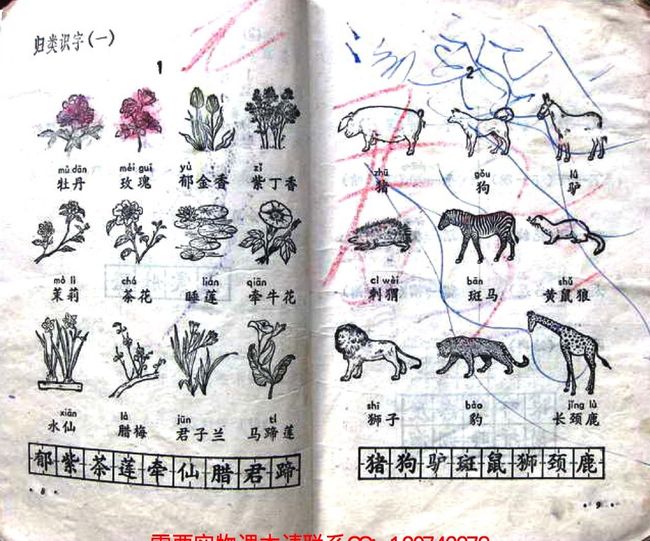 归类识字(一)
1
mǔ dān méi gui yù zǐ
牡丹 玫瑰 郁金香 紫丁香
mò lì chá lián qiān
茉莉 茶花 睡莲 牵牛花
xiān là jūn tí
水仙 腊梅 君子兰 马蹄莲
郁紫茶莲牵仙腊君蹄
· 8 ·
2
zhū gǒu lǘ
猪 狗 驴
cì wèi bān shǔ
刺猬 斑马 黄鼠狼
shī bào jǐng lù
狮子 豹 长颈鹿
猪狗驴斑鼠狮颈鹿
· 9 ·